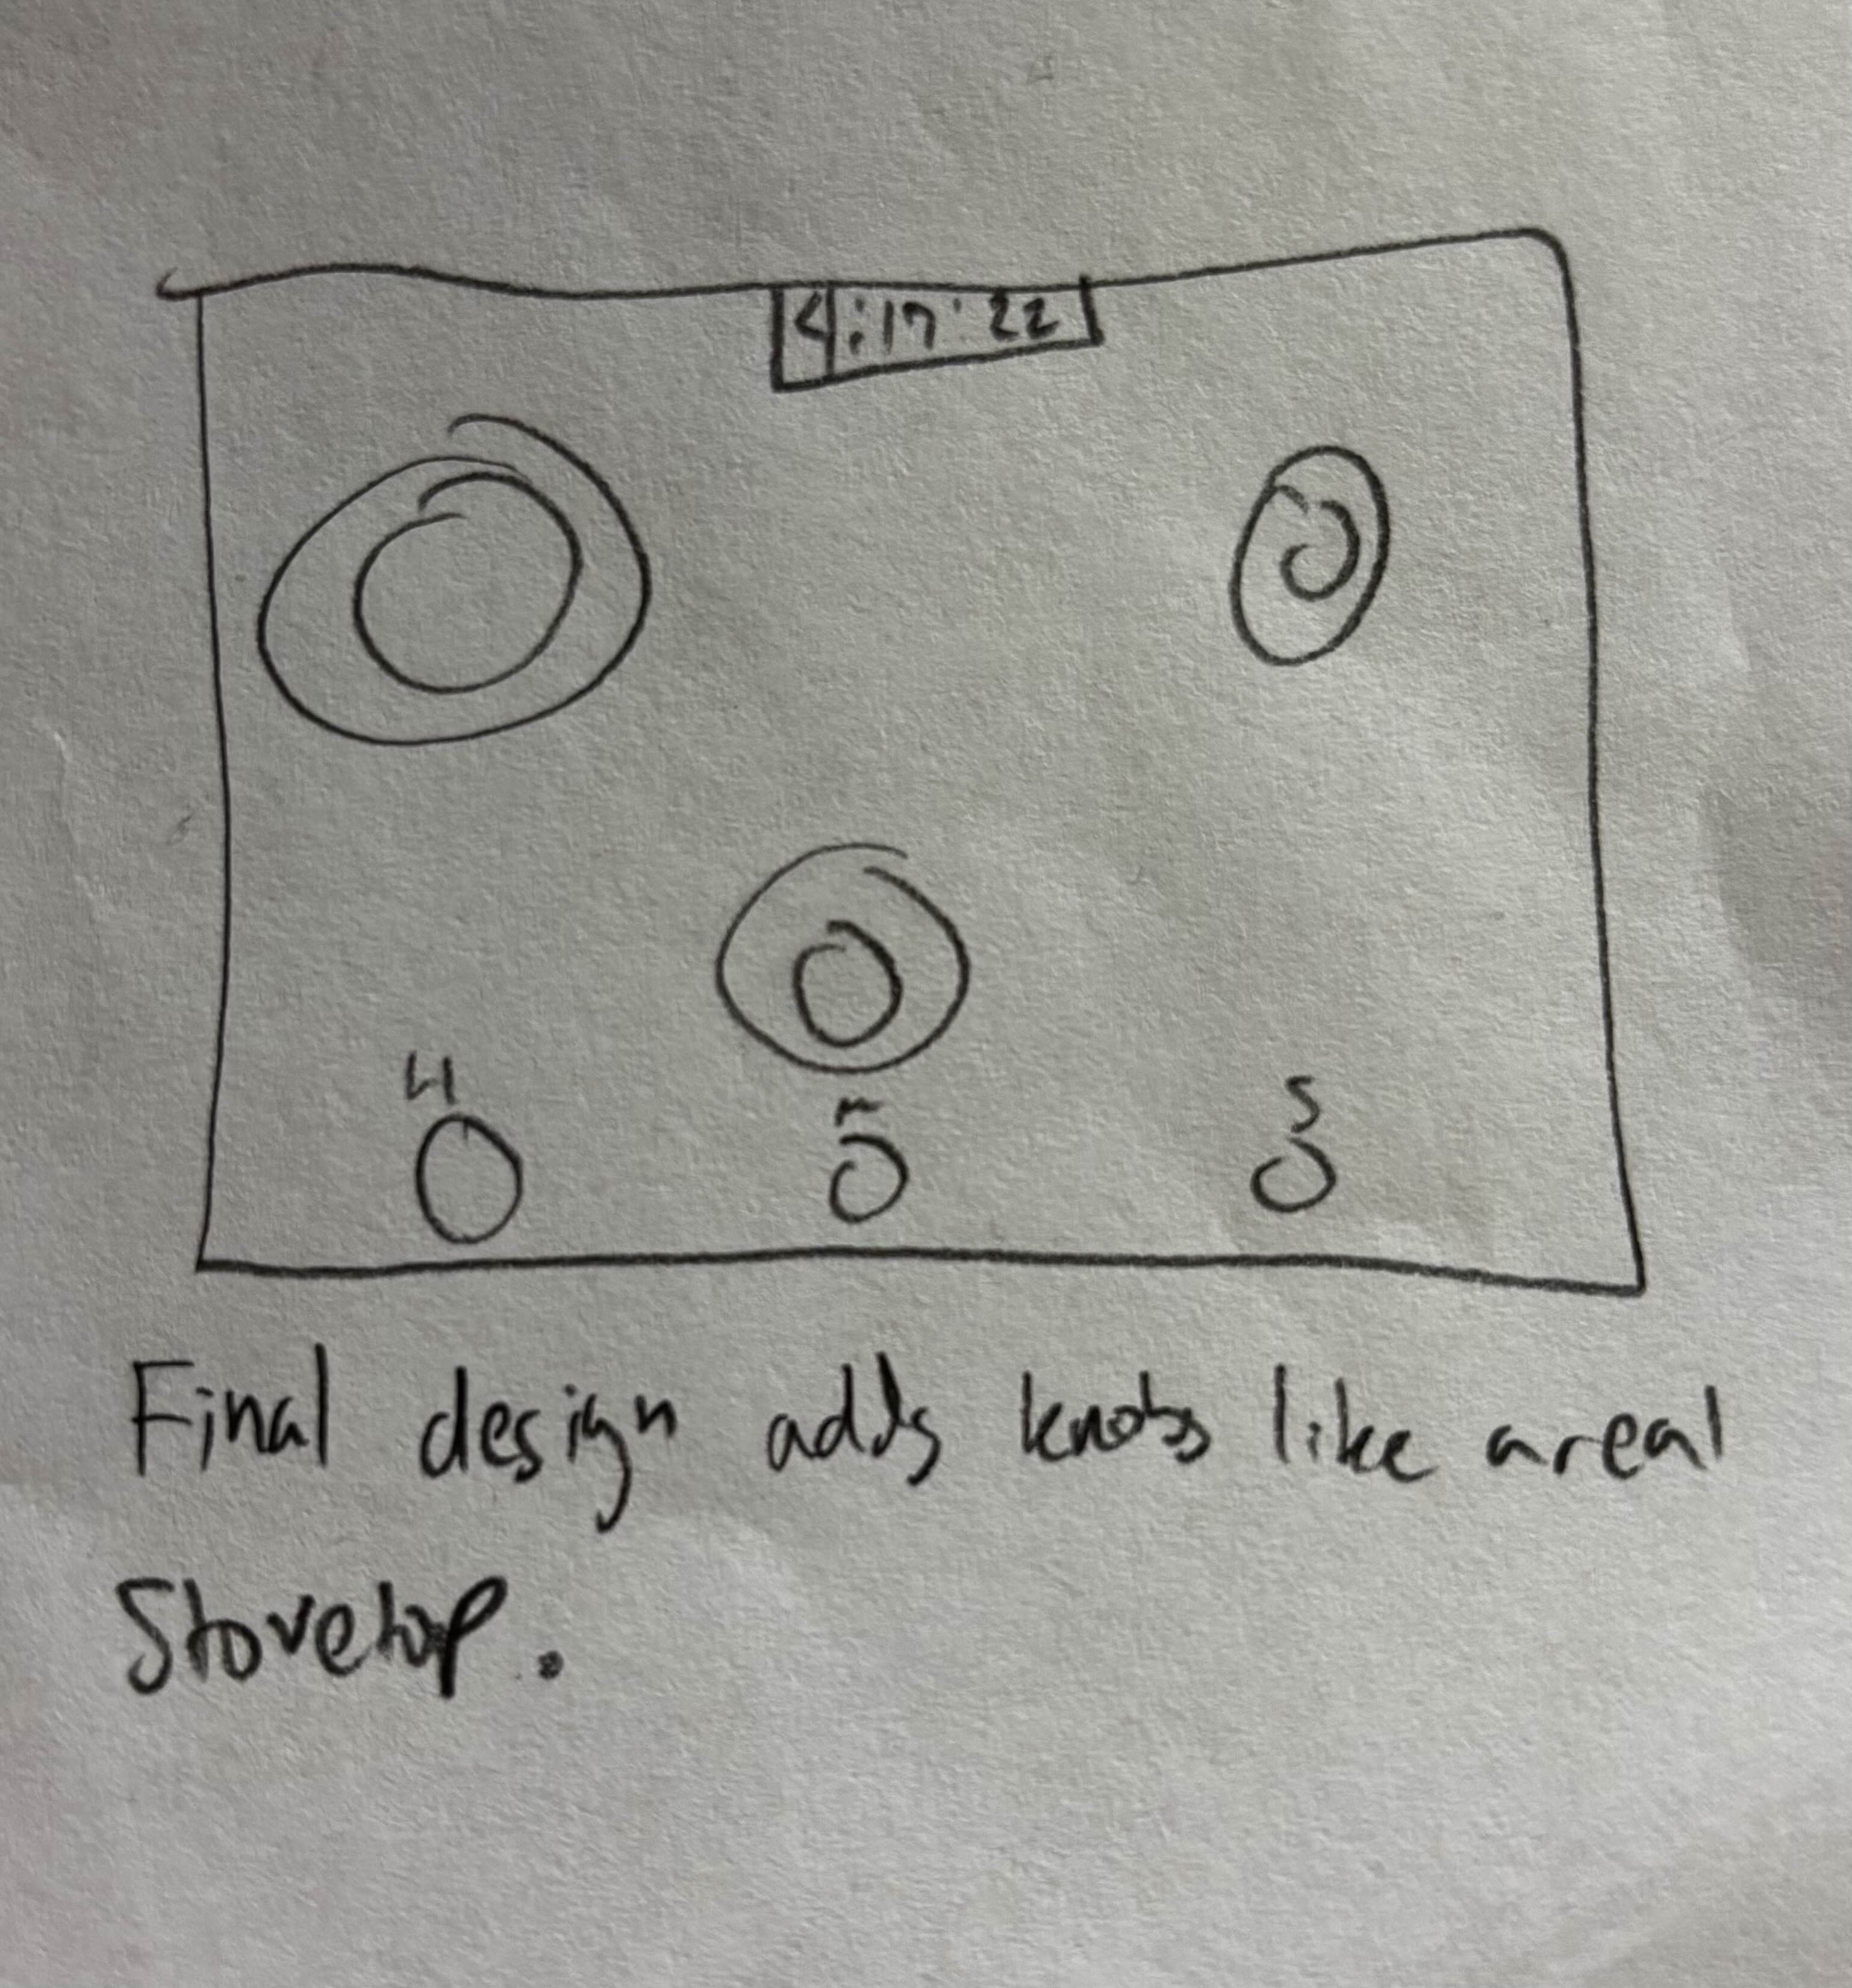 4:17:22
H
M
S
Final design adds knobs like a real
Stovetop.